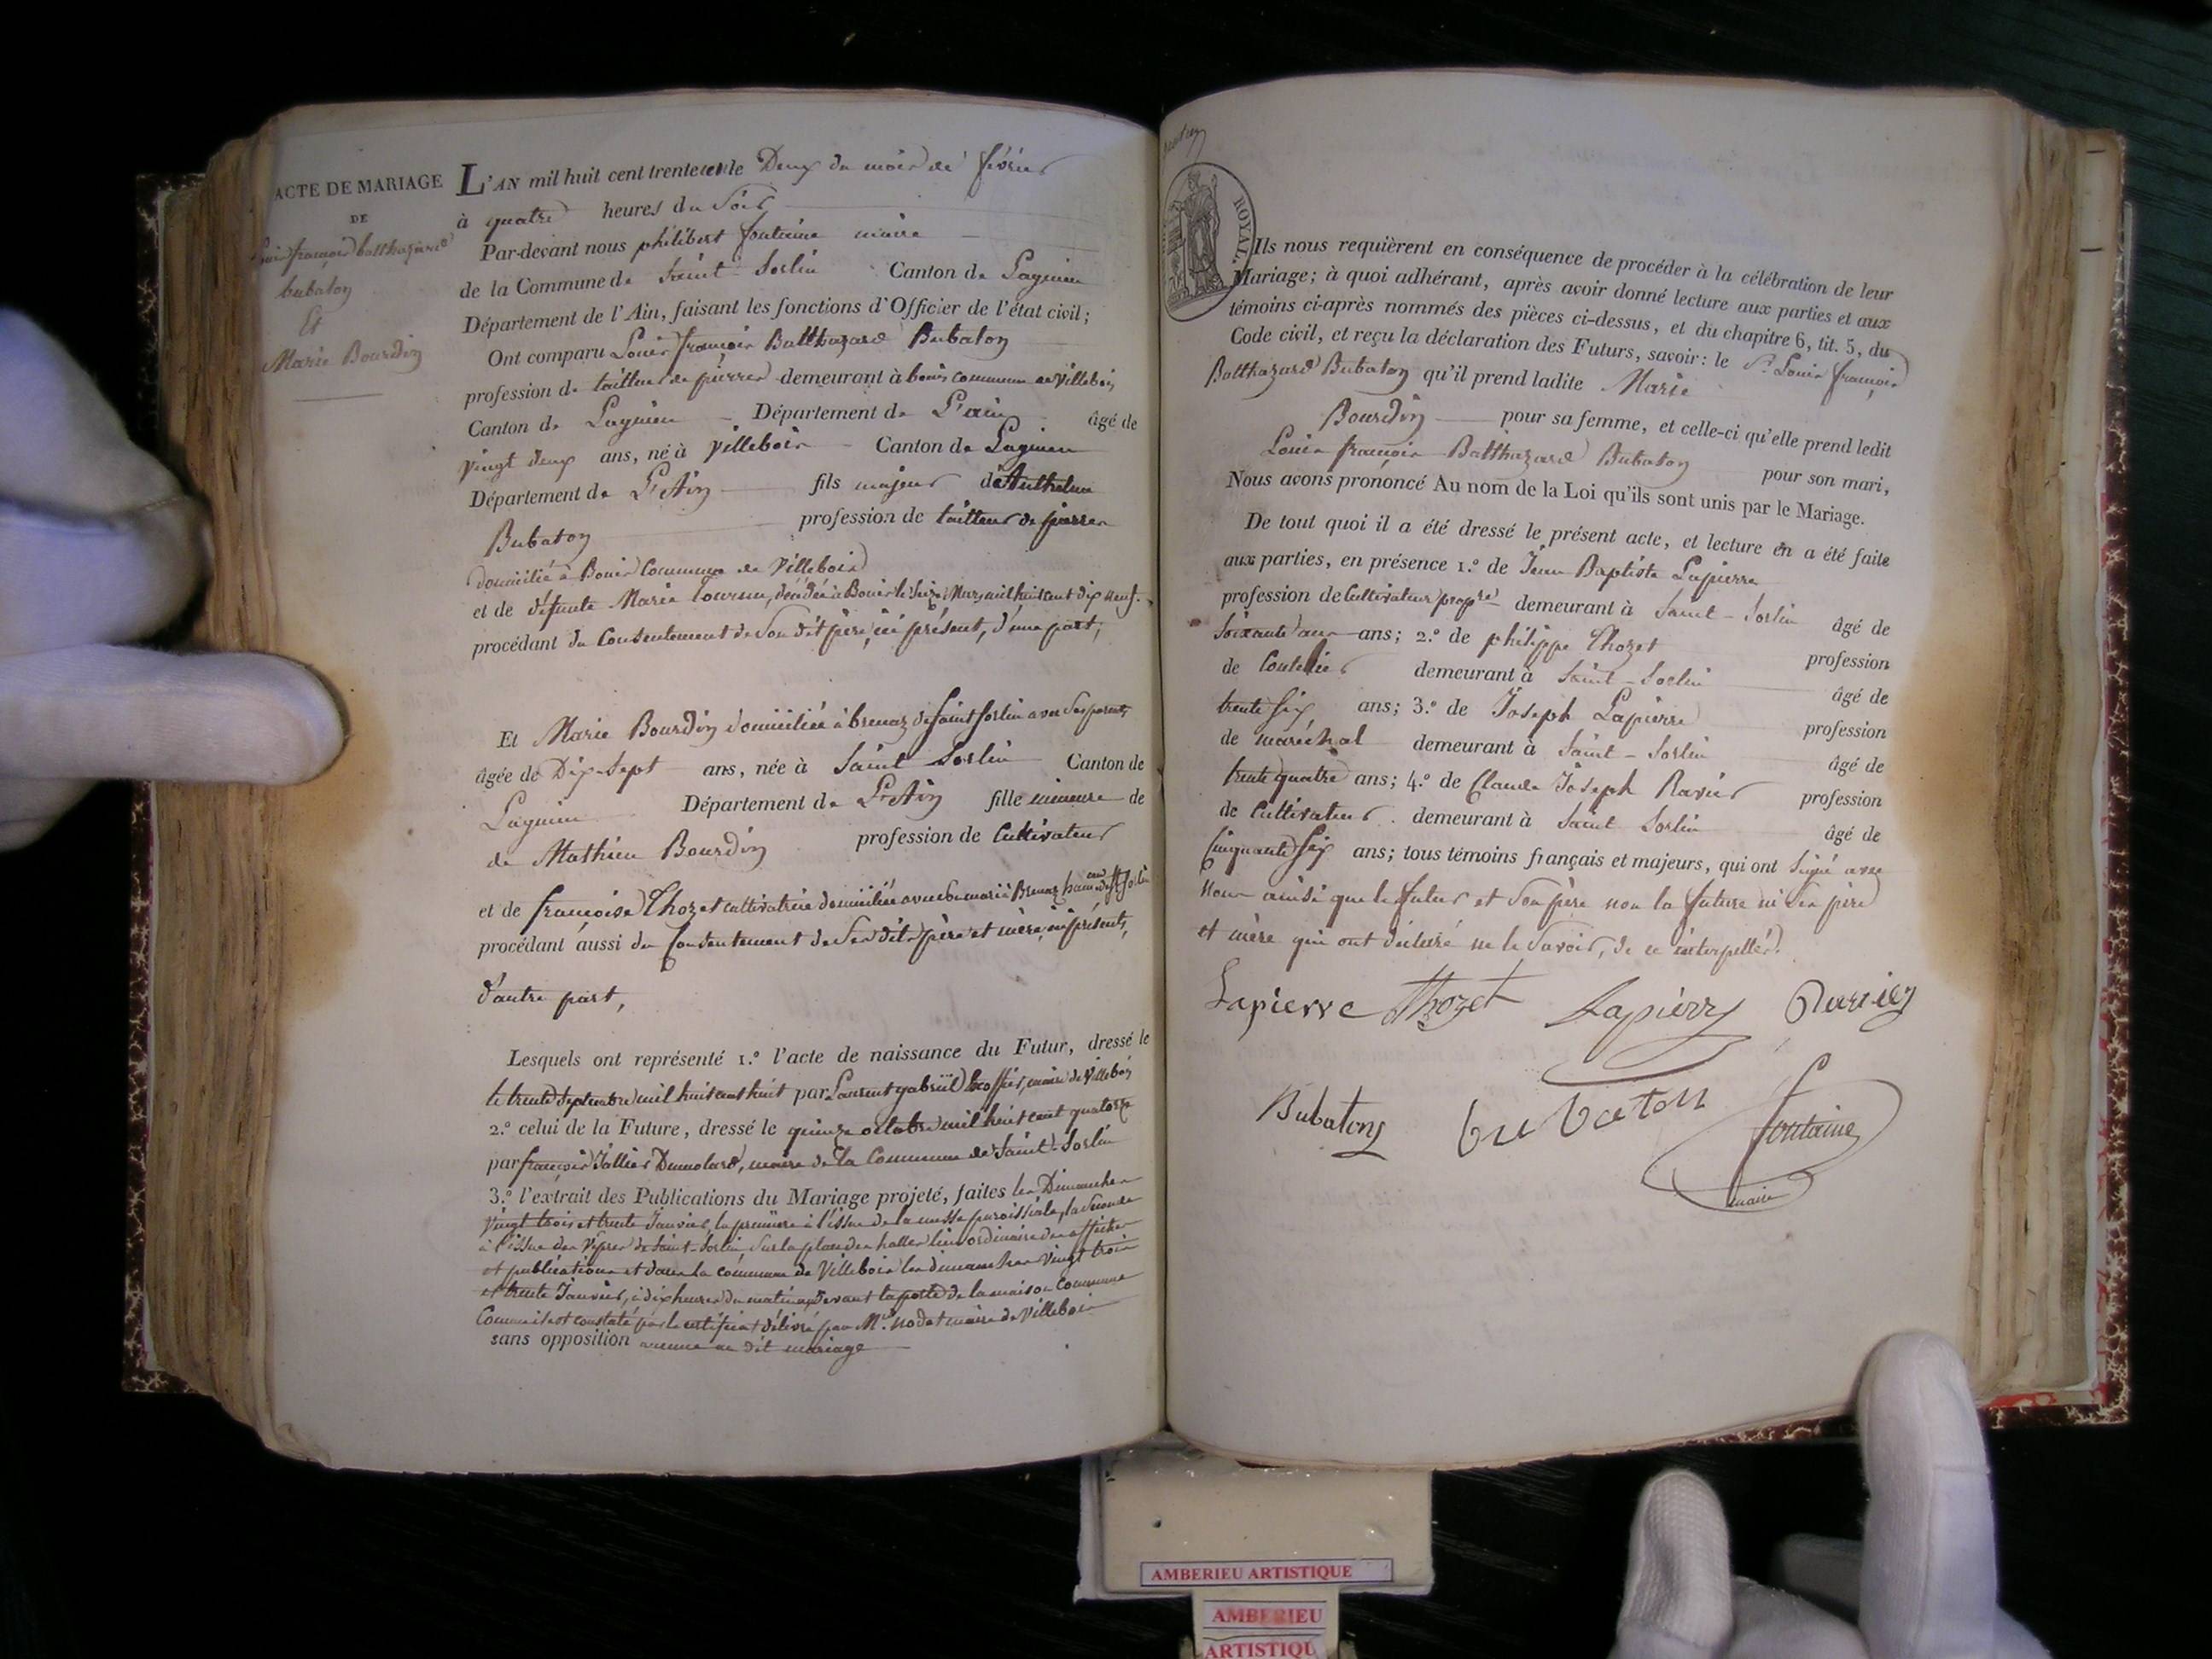 ACTE DE MARIAGE
DE
françois balthazard
bubaton
Et
Marie Bourdin
L'AN mil huit cent trente le Deux du mois de février
à quatre heures du Soir
Par-devant nous philibert fontaine maire
de la Commune de Saint-Sorlin Canton de Lagnieu
Département de l'Ain, faisant les fonctions d'Officier de l'état civil;
Ont comparu Louis françois Balthazard Bubaton
profession de tailleur de pierres demeurant à bouis commune de Villebois
Canton de Lagnieu Département de L'ain âgé de
vingt deux ans, né à Villebois Canton de Lagnieu
Département de L'Ain fils majeur d'Anthelme
Bubaton profession de tailleur de pierres
domicilié à Bouis Commune de Villebois
et de défunte Marie tournu, décédée à Bouis le Seize Mars mil huit cent dix neuf.
procédant du Consentement de Son dit père, ici présent, d'une part,
Et Marie Bourdin domiciliée à brenaz de Saint Sorlin avec Ses parents
âgée de Dix-Sept ans, née à Saint Sorlin Canton de
Lagnieu Département de L'Ain fille mineure de
de Mathieu Bourdin profession de Cultivateur
et de françoise Thozet cultivatrice domiciliée avec son mari à Brenaz hameau de St Sorlin
procédant aussi du Consentement de Ses dits père et mère, ici présents,
d'autre part,
Lesquels ont représenté 1.º l'acte de naissance du Futur, dressé le
le trente Septembre mil huit cent huit par Laurent gabriel maire de Villebois
2.º celui de la Future, dressé le quinze octobre mil huit cent quatorze
par françois Jallier Dumolard, maire de la Commune de Saint-Sorlin
3.º l'extrait des Publications du Mariage projeté, faites les Dimanches
vingt trois et trente Janvier, la première à l'issue de la messe paroissiale, la Seconde
à l'issue des Vêpres de Saint-Sorlin Sur la place des halles lieu ordinaire des affiches
et publications et dans la commune de Villebois les dimanches vingt trois
et trente Janvier, à dix heures du matin, devant la porte de la maison Commune
Comme il est constaté par le certificat délivré par Mr. nodet maire de Villebois
sans opposition aucune au dit mariage
ROYAL.
Ils nous requièrent en conséquence de procéder à la célébration de leur
Mariage; à quoi adhérant, après avoir donné lecture aux parties et aux
témoins ci-après nommés des pièces ci-dessus, et du chapitre 6, tit. 5, du
Code civil, et reçu la déclaration des Futurs, savoir: le Sr. Louis françois
Balthazard Bubaton qu'il prend ladite Marie
Bourdin pour sa femme, et celle-ci qu'elle prend ledit
Louis françois Balthazard Bubaton pour son mari,
Nous avons prononcé Au nom de la Loi qu'ils sont unis par le Mariage.
De tout quoi il a été dressé le présent acte, et lecture en a été faite
aux parties, en présence 1.º de Jean Baptiste Lapierre
profession de Cultivateur propre demeurant à Saint-Sorlin âgé de
Soixante ans; 2.º de philippe Thozet profession
de Coutelier demeurant à Saint-Sorlin âgé de
trente Six ans; 3.º de Joseph Lapierre profession
de maréchal demeurant à Saint-Sorlin âgé de
trente quatre ans; 4.º de Claude Joseph Ravier profession
de Cultivateur demeurant à Saint Sorlin âgé de
Cinquante Six ans; tous témoins français et majeurs, qui ont Signé avec
Nous ainsi que le futur et Son père non la future ni Ses père
et mère qui ont déclaré ne le Savoir, de ce interpellés.
Lapierre Thozet Lapierre Ravier
Bubaton bubaton fontaine
maire
AMBERIEU ARTISTIQUE
AMBERIEU
ARTISTIQU